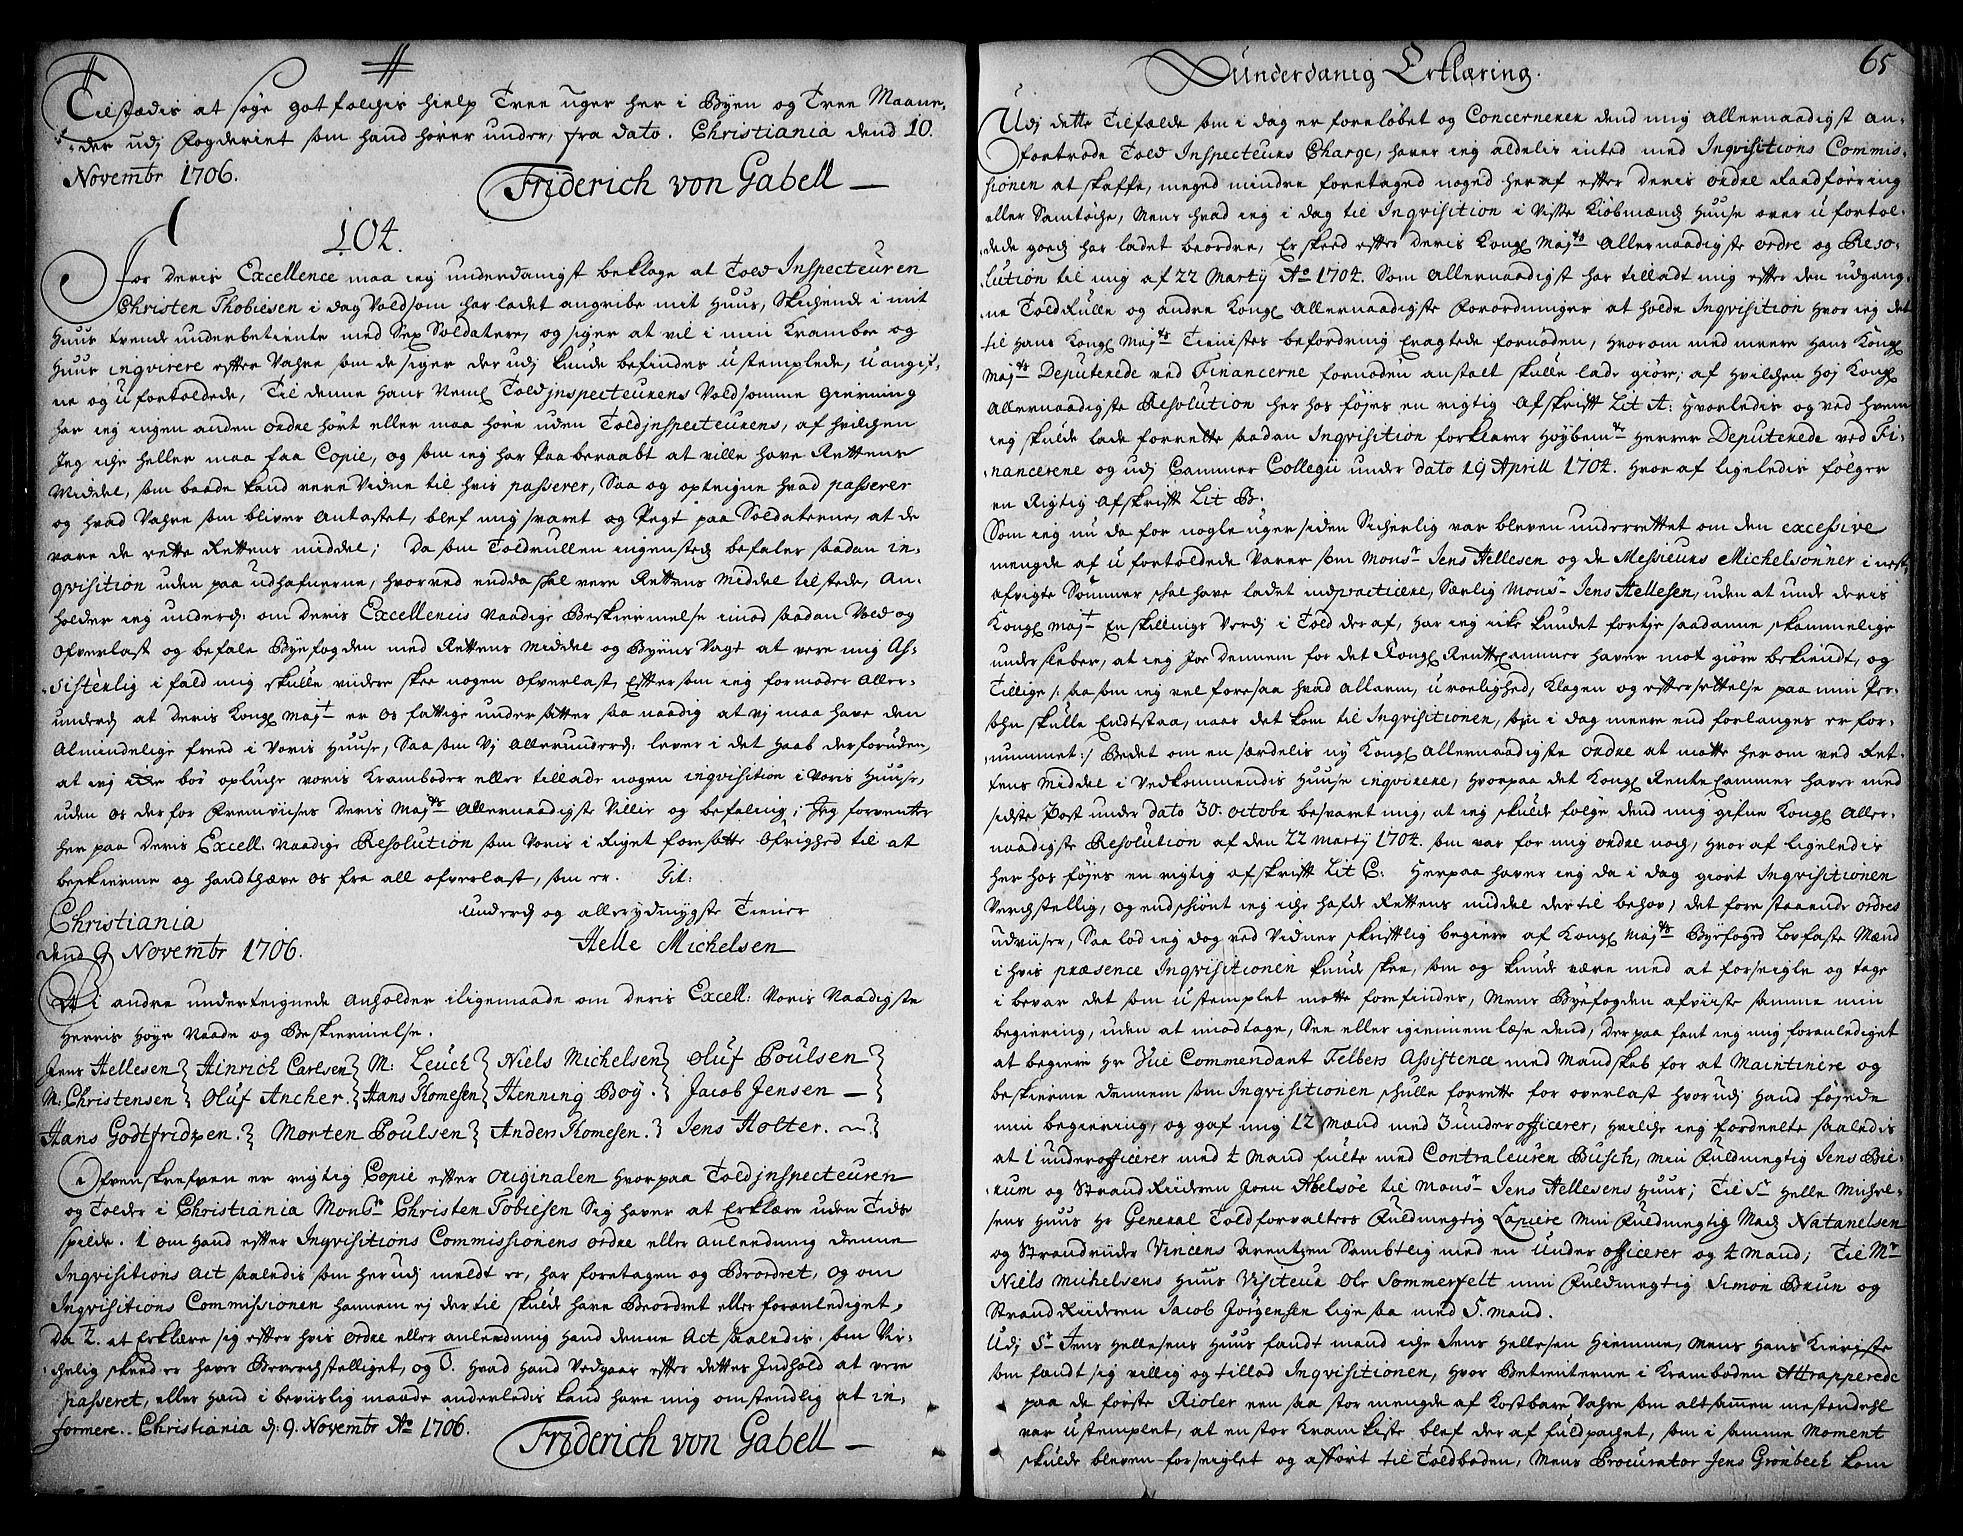 Tilstædis at søge got folchis hielp Tree uger her i Byen og Tree Maane,
der udj Fogderiet som hand hører under, fra dato. Christiania dend 10.
Novembr 1706.
Friderich von Gabell
104.
For Deris Excellence maa ieg underdanigst beklage at Told Inspecteuren
Christen Thobiesen i dag Voldsom har ladet angribe mit Huus, Skichende i mit
Huus trende underbetiente med Sex Soldatere, og siger at vil i min Kramboe og
Huus inqvirere efter Vahre som de siger der udj kunde befindes ustemplede, uangif,
ne og ufortoldede, Til denne Hans Veml Toldjnspecteurens Voldsomme Gierning
har ieg ingen anden ordre hørt eller maa høre uden Toldjnspecteurens, af hvilchen
Jeg iche heller maa faa Copie, og som ieg har Paaberaabt at ville have Rettens
Middel, som baade kand vere Vidne til hvis passerer, Saa og opteigne hvad passerer
og hvad Vahre som bliver Antastet, blef mig svaret og Pegt paa Soldaterne, at de
vare de rette Rettens middel; Da som Toldrullen ingensteds befaler saadan in,
qvisition uden paa udhafnerne, hvorved endda skal vere Rettens Middel tilstede, An,
holder ieg underd: om Deris Excellencis Naadige Beskiermelse imod saadan Vold og
Ofverlast og befale Byefogden med Rettens Middel og Byens Vagt at vere mig As,
sistenlig i fald mig skulle videre skee nogen Ofverlast, Eftersom ieg formoder Aller,
underd at Deris Kongl Majt er os fattige undersatter saa naadig at vj maa have den
Almindelige freed i Voris Huuse, Saa som Vj Allerunderd: lever i det Haab derforuden,
at vj iche bør opluche voris Kramboder eller tillade nogen inqvisition i Voris Huuse,
uden os derfor Fremvises Deris Majts Allernaadigste Villie og befaling; Jeg forventer
her paa Deris Excell: Naadige Resolution som Voris i Riget foresatte Ofrighed til at
beskierme og handthæve os fra all ofverlast, som er. Tit:
Underd og allerydmygste Tiener
Christiania
dend 9 Novembr 1706.
Helle Michelsen
Wi andre underteignede Anholder iligemaade om Deris Excell: Voris Naadigste
Herris Høye Naade og Beskiermelse.
Jens Hellesen } Hinrich Carlsen } M: Leuch } Niels Michelsen } Oluf Poulsen }
M: Christensen } Oluf Ancher. } Hans Thomesen } Henning Boÿ. } Jacob Jensen
Hans Godtfridzen. } Morten Poulsen } Anders Thomesen. } Jens Holter. }
Ofvenskrefven er rigtig Copie efter Originalen hvorpaa Toldjnspecteuren
og Tolder i Christiania Monsr Christen Tobiesen Sig haver at Erklære uden Tids
spilde. 1 om Hand efter Inqvisitions Commissionens ordre eller Anledning denne
Inqvisitions Act saaledis som herudj meldt er, har foretagen og Beordret, og om
Inqvisitions Commissionen hannem ej der til skulde have Beordret eller foranlediget,
Da 2. at Erklære sig efter hvis ordre eller anledning Hand denne Act saaledis som Vir,
chelig skeed er haver Beverchstelliget, og 3. Hvad Hand Vedgaar efter dettes Indhold at vere
passeret, eller Hand i beviislig maade anderledis kand have mig omstendlig at in,
formere. Christiania d: 9. Novembr Ao 1706.
Friderich von Gabell
65
Underdanig Erklæring.
Udj dette Tilfælde som i dag er foreløbet og Concernerer dend mig Allernaadigst an,
fortrode Told Inspecteurs Charge, haver ieg aldelis inted med Inqvisitions Commis,
sionen at skaffe, meged mindre foretaged noged heraf efter Deris Ordre Raadføring
eller Samtøche, Mens hvad ieg i dag til Inqvisition i Visse Kiøbmænds Huuse over ufortol,
dede goeds har ladet beordre, Er skeed efter Deris Kongl Majts Allernaadigste ordre og Reso,
lution til mig af 22 Martÿ Ao 1704. Som Allernaadigst har tilladt mig efter den udgang,
ne Toldrulle og andre Kongl Allernaadigste Forordninger at holde Inqvisition hvor ieg det
til Hans Kongl Majts Tienistes befordring Eragtede fornøden, hvorom med meere Hans Kongl
Majts Deputerede ved Financerne fornøden anstalt skulle lade giøre; af hvilchen Høj Kongl
Allernaadigste Resolution her hos føjes en rigtig Afskrift Lit A: Hvorledis og ved hvem
ieg skulde lade forrette saadan Inqvisition forklarer Høybemte Herrer Deputerede ved Fi,
nancerne og udj Cammer Collegii under dato 19 Aprill 1704. Hvor af ligeledis følger
en Rigtig Afskrift Lit B.
Som ieg nu da for nogle uger siden Sicherlig var bleven underrettet om den excessive
mengde af ufortoldede Varer som Monsr Jens Hellesen og de Messieurs Michelsønner i nest,
afvigte Sommer skal have ladet indpracticere, Særlig Monsr Jens Hellesen, uden at unde deris
Kongl Majt En skillings Verdj i Told der af, Har ieg icke kundet fortje saadanne skammelige
underslæber, at ieg Joe Dennem for det Kongl RentteCammer haver mot giøre bekiendt, og
Tillige /: saa som ieg vel foresaa hvad Allarm, uroelighed, Klagen og eftersettelse paa min Per,
sohn skulle Endtstaa, naar det kom til Inqvisitionen, som i dag meere end forlanges er for,
nummet :/ Bedet om en særdelis ny Kongl Allernaadigste ordre at motte herom ved Ret,
tens Middel i Vedkommendis Huuse inqvirere, Hvorpaa det Kongl Rente Cammer haver med
sidste Post under dato 30. octobr besvaret mig, at ieg skulde følge dend mig gifne Kongl Aller,
naadigste Resolution af den 22 Martÿ 1704. som var for mig ordre nock, Hvor af ligeledis
her hos føjes en rigtig afskrift Lit C: Herpaa haver ieg da i dag giort Inqvisitionen
Verchstellig, og endskiønt ieg iche hafde Rettens middel der til behov, det forestaaende ordres
udviser, Saa lod ieg dog ved Vidner skriftlig begiere af Kongl Majts Byefoged Lovfaste Mænd
i hvis præsence Inqvisitionen kunde skee, som og kunde være med at forseigle og tage
i bevar det som ustemplet motte forefindes, Mens Byefogden afviiste samme min
begiering, uden at imodtage, See eller igiennemlæse dend, Der paa fant ieg mig foranlediget
at begiere Hr Vice Commendant Felbers Assistence med Mandskab for at Maintinere og
beskierme dennem som Inqvisitionen skulle forrette for overlast hvorudj Hand føjede
min begiering, og gaf mig 12 Mænd med 3 underofficerer, Hvilche ieg fordeelte saaledis
at 1 underofficerer med 4 Mand fulte med Contraleuren Busch, min Fuldmegtig Jens Bie,
rum og StrandRiideren Joen Abelsøe til Monsr Jens Hellesens Huus; Til Sr Helle Michel,
sens Huus Hr General Toldforvalters Fuldmegtig Lapiere min Fuldmegtig Mads Natanelsen
og Strandriider Vincens Arentzen Sambtlig med en Under officerer og 4 Mand; Til Mr
Niels Michelsens Huus Visiteur Ole Sommerfelt min Fuldmegtig Simon Brun og
StrandRiideren Jacob Jørgensen lige saa med 5. Mand.
Udj Sr Jens Hellesens Huus fandt mand iche Jens Hellesen Hiemme, Mens Hans Kieriste
som fandt sig villig og tillod Inqvisitionen, Hvor Betienterne i Kramboden Attrapperede
paa de første Rioler een saa stor mengde af Kostbare Vahre som altsammen mestendehl
var ustemplet, at en stor Kramkiste blef der af fuldpachet, som i samme Moment
skulde bleven forseiglet og afført til Toldboden, Mens Procurator Jens Grønbech kom